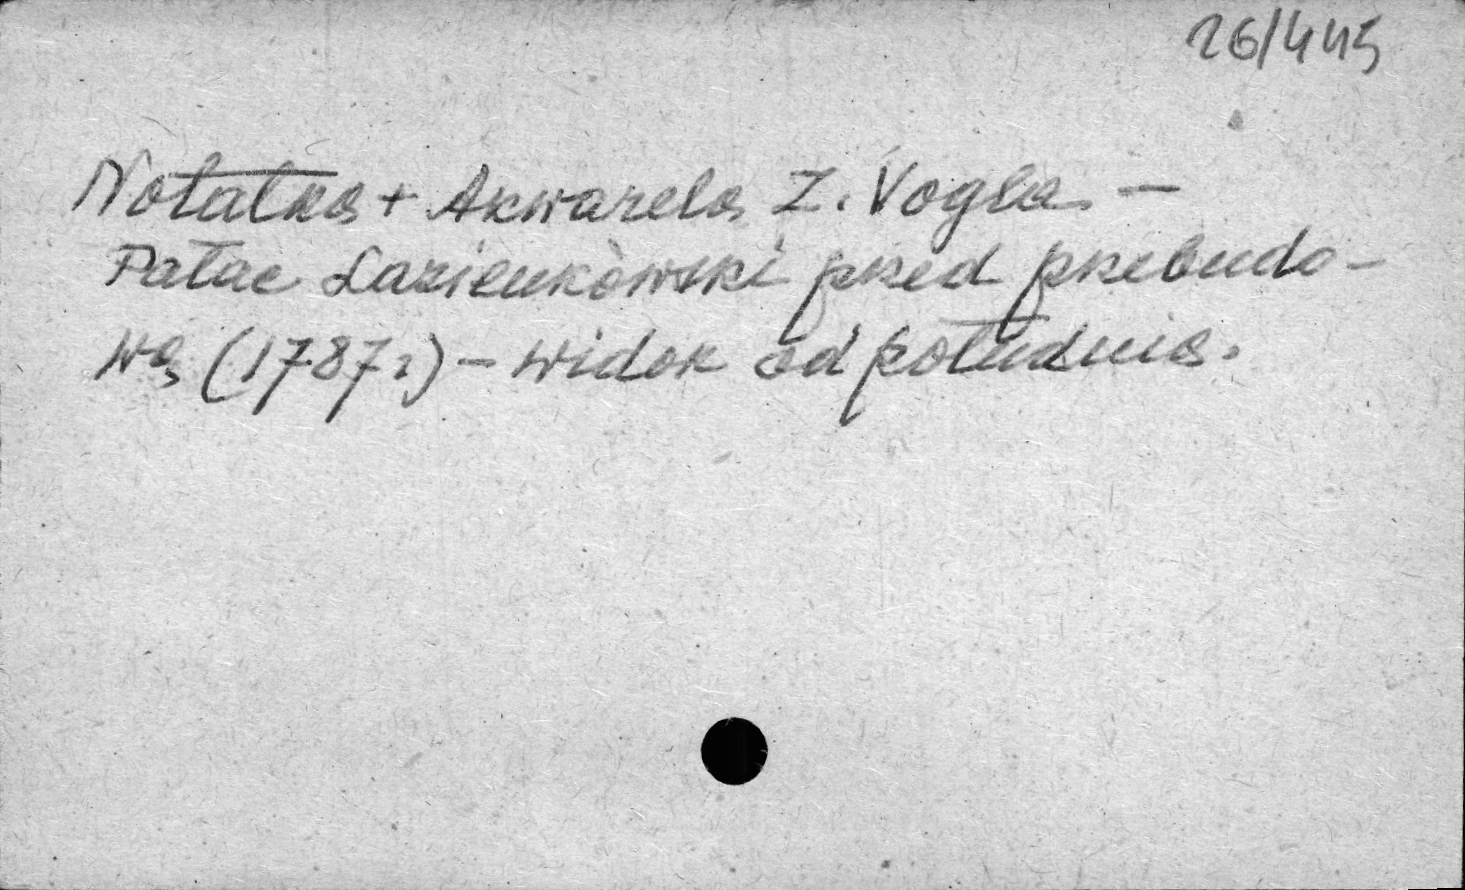 26/445
Notatka + Akwarela Z. Vogla —
Pałac Łazienkowski przed przebudo-
wą (1787r) - widok od południa.